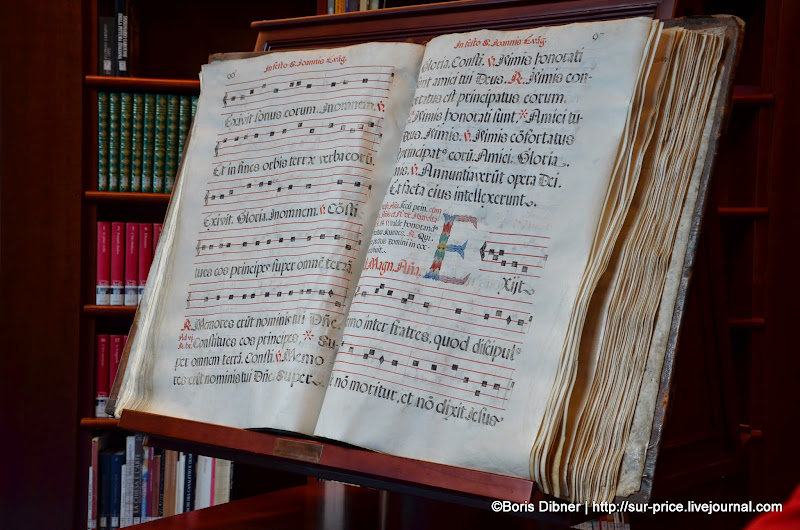 In festo S. Ioannis Evāg.
Exivit sonus eorum. In omnem. V
Et in fines orbis terræ verba eorū
Exivit. Gloria. In omnem. V Cōsti
tues eos principes super omnē terrā
R Memores erūt nominis tui Dñe.
Constitues eos principes, * Su
per omnem terrā. Consti. V Memo
res erūt nominis tui Dñe. Super.
In festo S. Ioannis Evāg.
97
Gloria. Consti. V Nimis honorati
sunt amici tui Deus. R Nimis con-
fortatus est principatus eorum.
Nimis honorati sunt, * Amici tu-
Deus. Nimis. V Nimis cōfortatus
principat9 eorū. Amici. Gloria
V Annuntiaverūt opera Dei.
Et facta eius intellexerunt.
E
Xijt
Magn. Aña.
inter fratres, quod discipul9
nō moritur, et nō dixit Jesus
©Boris Dibner | http://sur-price.livejournal.com